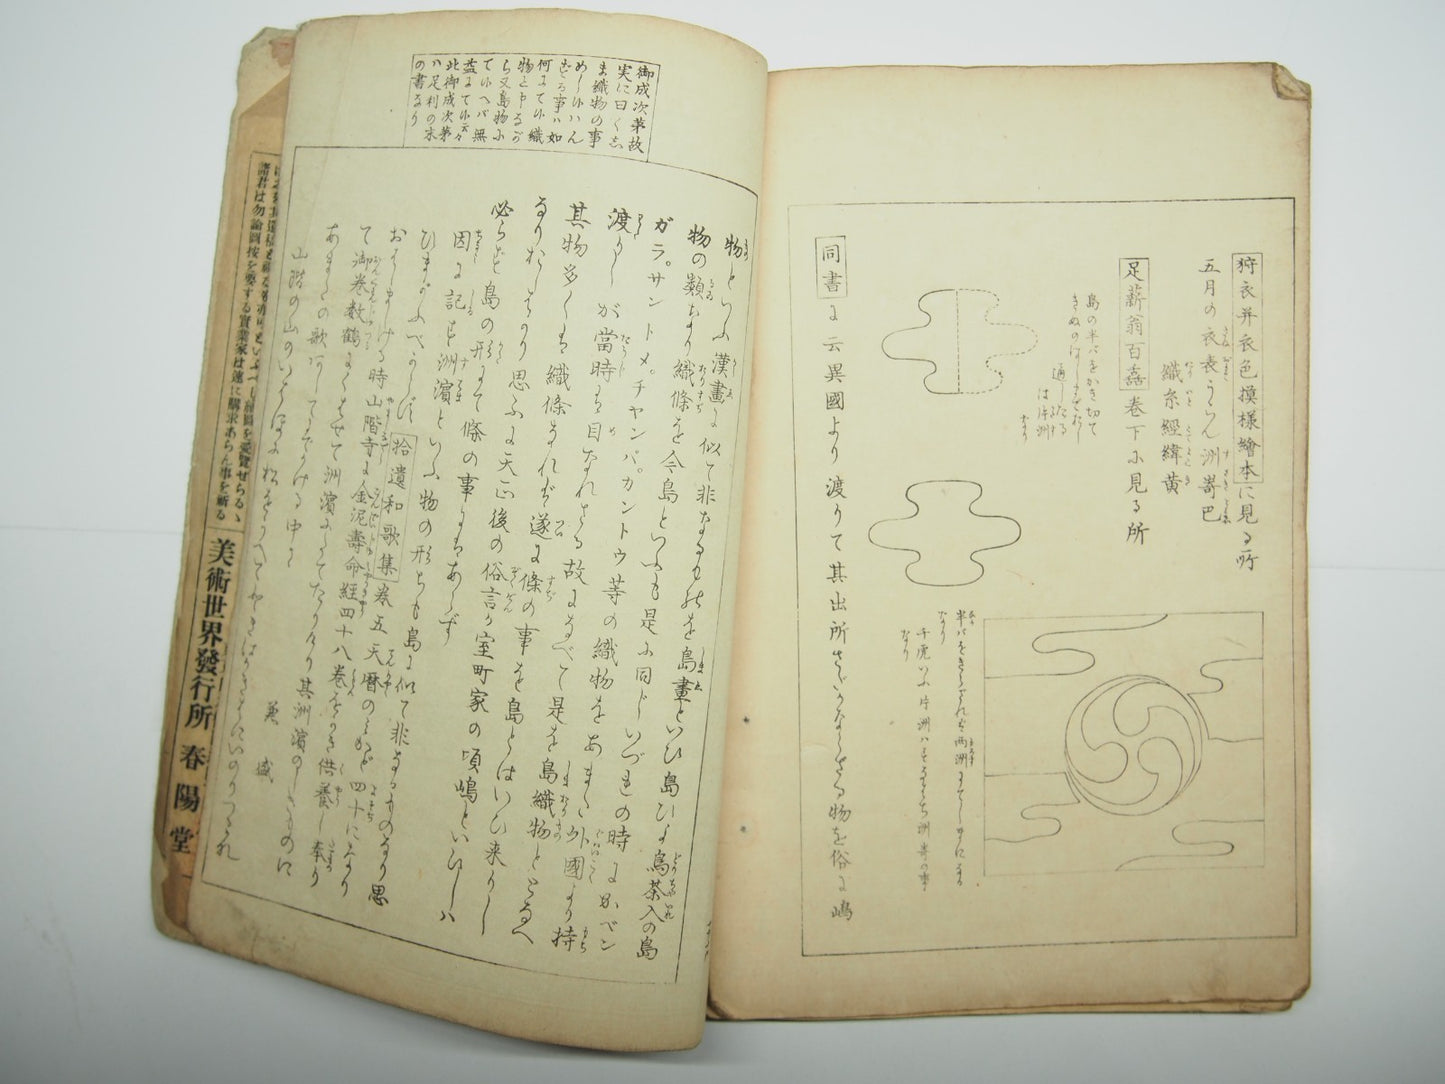 狩衣并衣色摸様繪本に見る所
五月の衣表うらん洲嵜巴
織糸經緯黄
足薪翁百嘉巻下に見る所
島の半バをかき切て
通したる
は片洲
なり
半バをきらざれバ両洲
なり
なり
同書に云異國より渡りて其出所さだかならざる物を俗に嶋
御成次第故
実に曰く志
ま織物の事
めしかハん
ずる事ハ如
何にても織
物と申るが
ら又島物に
てハヘバ無
益にて云々
此御成次第
ハ足利の末
の書なり
物といふ漢畫に似て非なるものを島畫といひ島ひよ鳥茶入の島
物の類なり織條を今島といふも是に同じいづれの時にかベン
ガラ。サントメ。チヤンパ。カントウ等の織物をあまた外國より持
渡りしが當時は目なれざる故になべて是を島織物ととなへ
其物多くは織條なれバ遂に條の事を島とはいひ来りし
なりおしはかり思ふに天正後の俗言か室町家の頃嶋といひしハ
必らず島の形にて條の事にはあらず
因に記す洲濱といふ物の形ちも島に似て非なるものなり思
ひまがふべからず
拾遺和歌集巻五天暦のみかど四十になり
おはしましける時山階寺に金泥壽命經四十八巻をかき供養し奉り
て御巻数鶴にくはせて洲濱にたてたりけり其洲濱のしきものに
あまたの歌あしてにかける中に
兼盛
山階の山のいはねに松をうゑてときはかきはにいのりつる
諸君は勿論圖按を要する實業家は速に購求あらん事を祈る
美術世界發行所 春陽堂